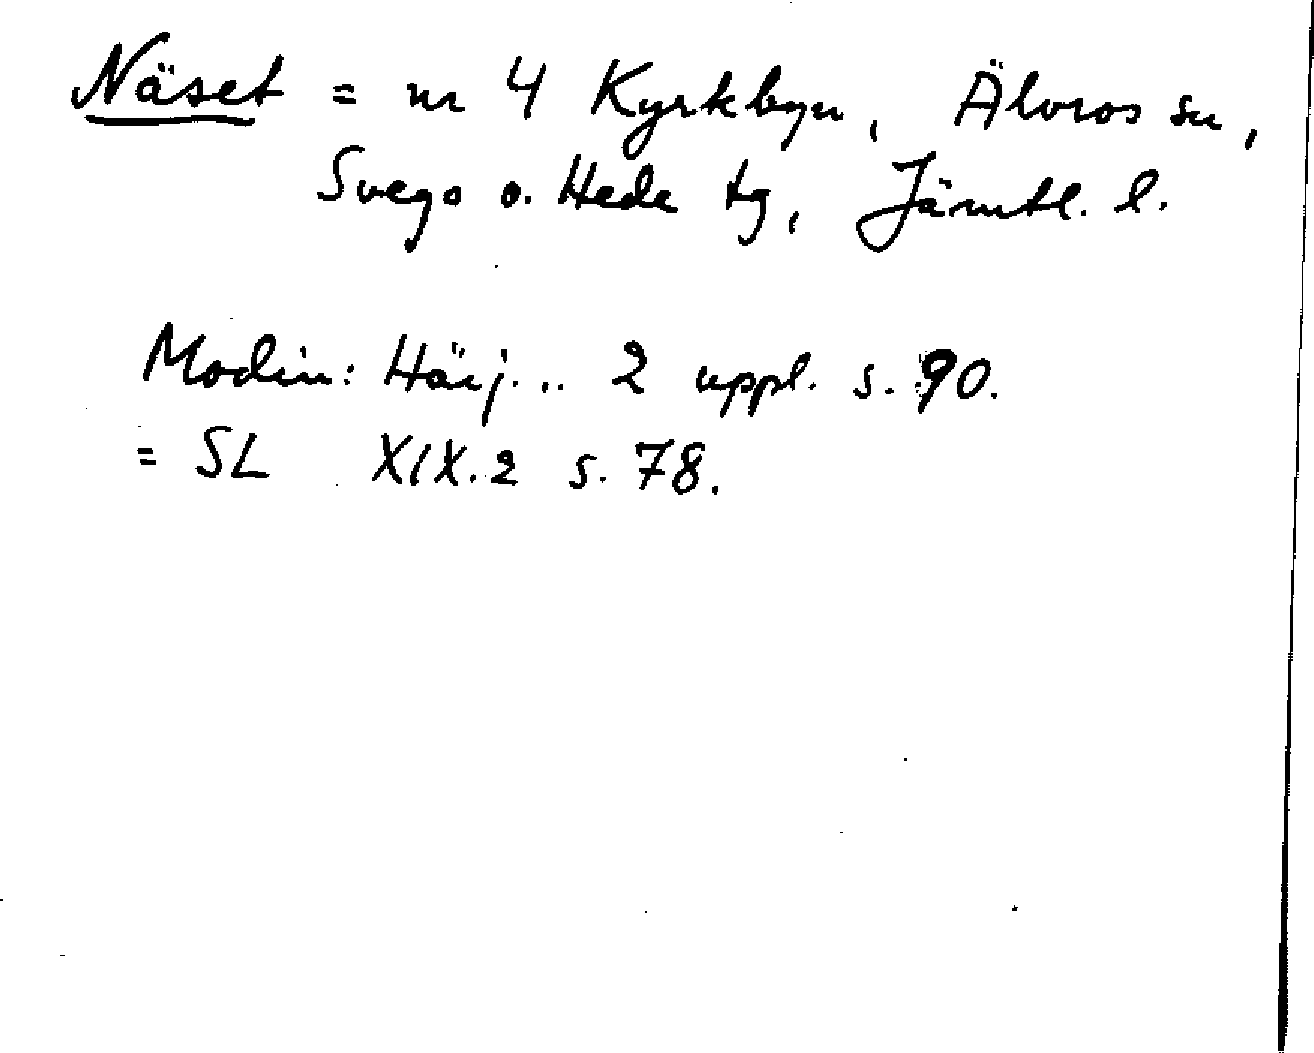 Näset = nr 4 Kyrkbyn, Älvros sn,
Svegs o. Hede tg, Jämtl. l.
Modin: Härj... 2 uppl. s. 90.
= SL XIX.2 s. 78.